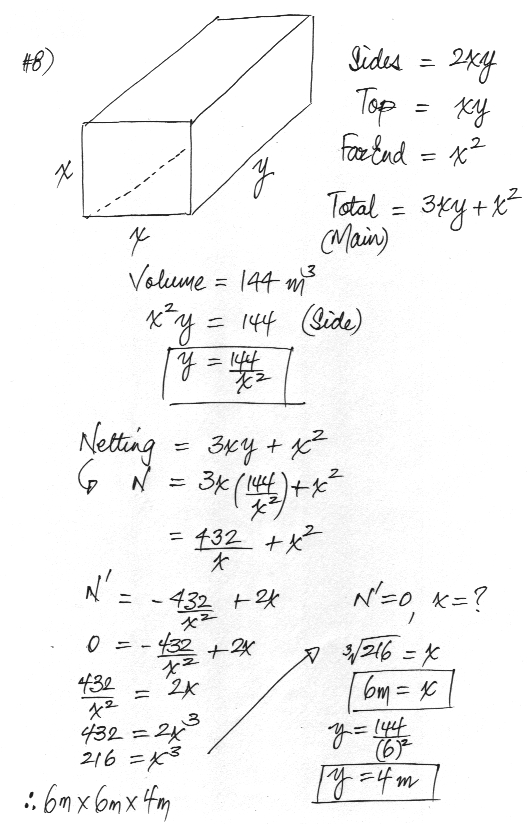 #8)
x
x
y
Sides = 2xy
Top = xy
Far End = x²
Total = 3xy + x²
(Main)
Volume = 144 m³
x²y = 144 (Side)
y = 144/x²
Netting = 3xy + x²
↳ N = 3x(144/x²) + x²
= 432/x + x²
N' = -432/x² + 2x
0 = -432/x² + 2x
432/x² = 2x
432 = 2x³
216 = x³
N'=0, x=?
³√216 = x
6m = x
y = 144/(6)²
y = 4 m
∴ 6m x 6m x 4m